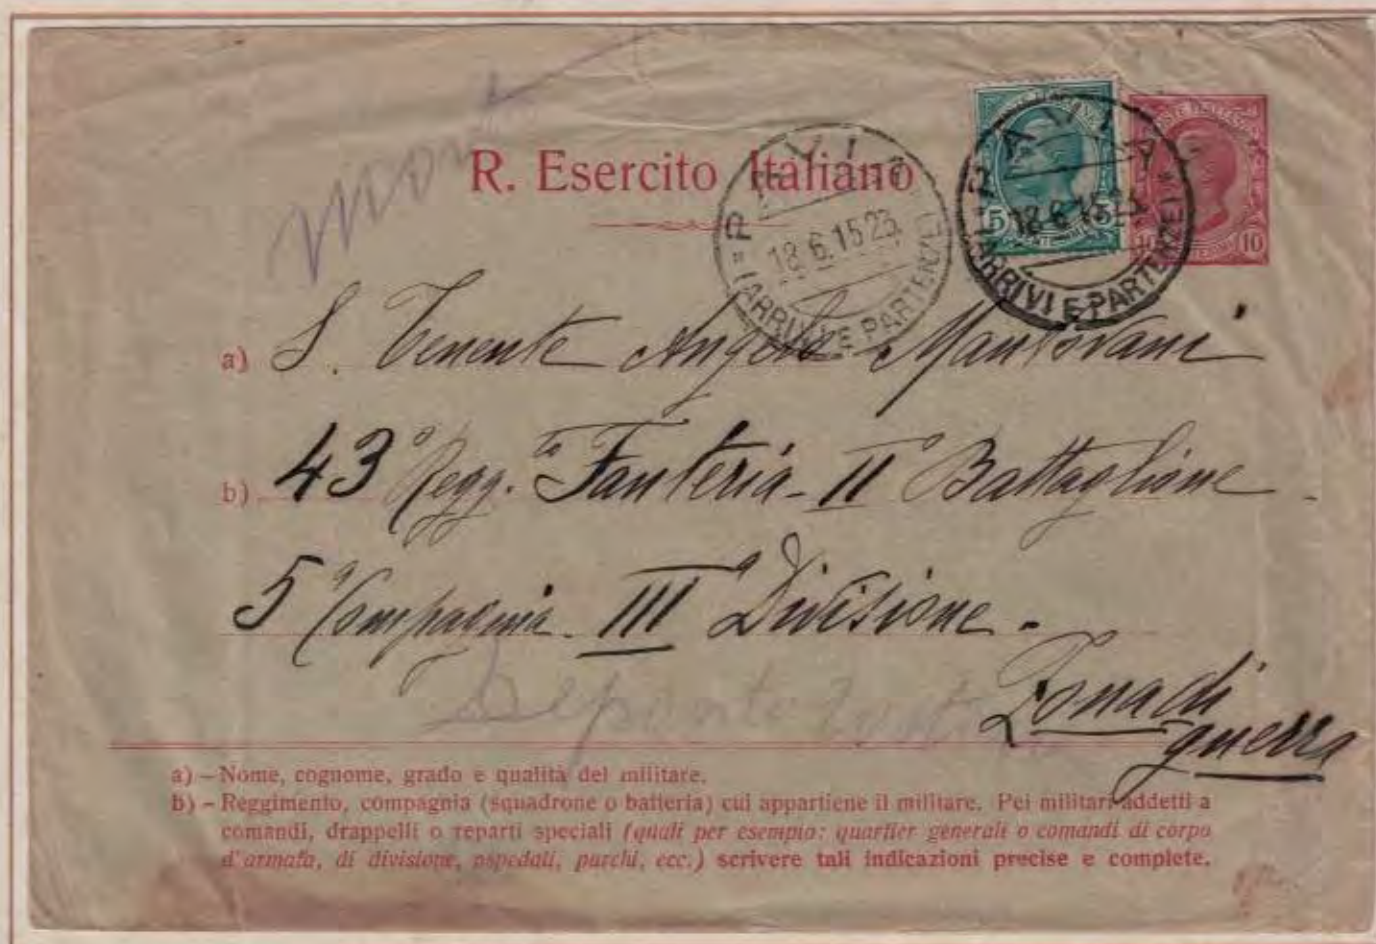 R. Esercito Italiano
PAVIA
18.6.15 23
(ARRIVI E PARTENZE)
PAVIA
18.6.15 23
(ARRIVI E PARTENZE)
5 5
10
a) S. Tenente Angelo Mantovani
b) 43° Regg.to Fanteria - II° Battaglione -
5a Compagnia - III a Divisione -
Zona di
guerra
Deposito
a) – Nome, cognome, grado e qualità del militare.
b) – Reggimento, compagnia (squadrone o batteria) cui appartiene il militare. Pei militari addetti a
comandi, drappelli o reparti speciali (quali per esempio: quartier generali o comandi di corpo
d'armata, di divisione, ospedali, parchi, ecc.) scrivere tali indicazioni precise e complete.